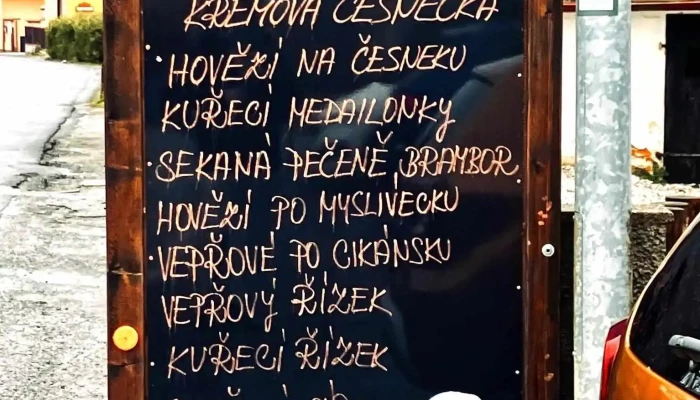 KRÉMOVÁ ČESNEČKA
HOVĚZÍ NA ČESNEKU
KUŘECÍ MEDAILONKY
SEKANÁ PEČENĚ, BRAMBOR
HOVĚZÍ PO MYSLIVECKU
VEPŘOVÉ PO CIKÁNSKU
VEPŘOVÝ ŘÍZEK
KUŘECÍ ŘÍZEK